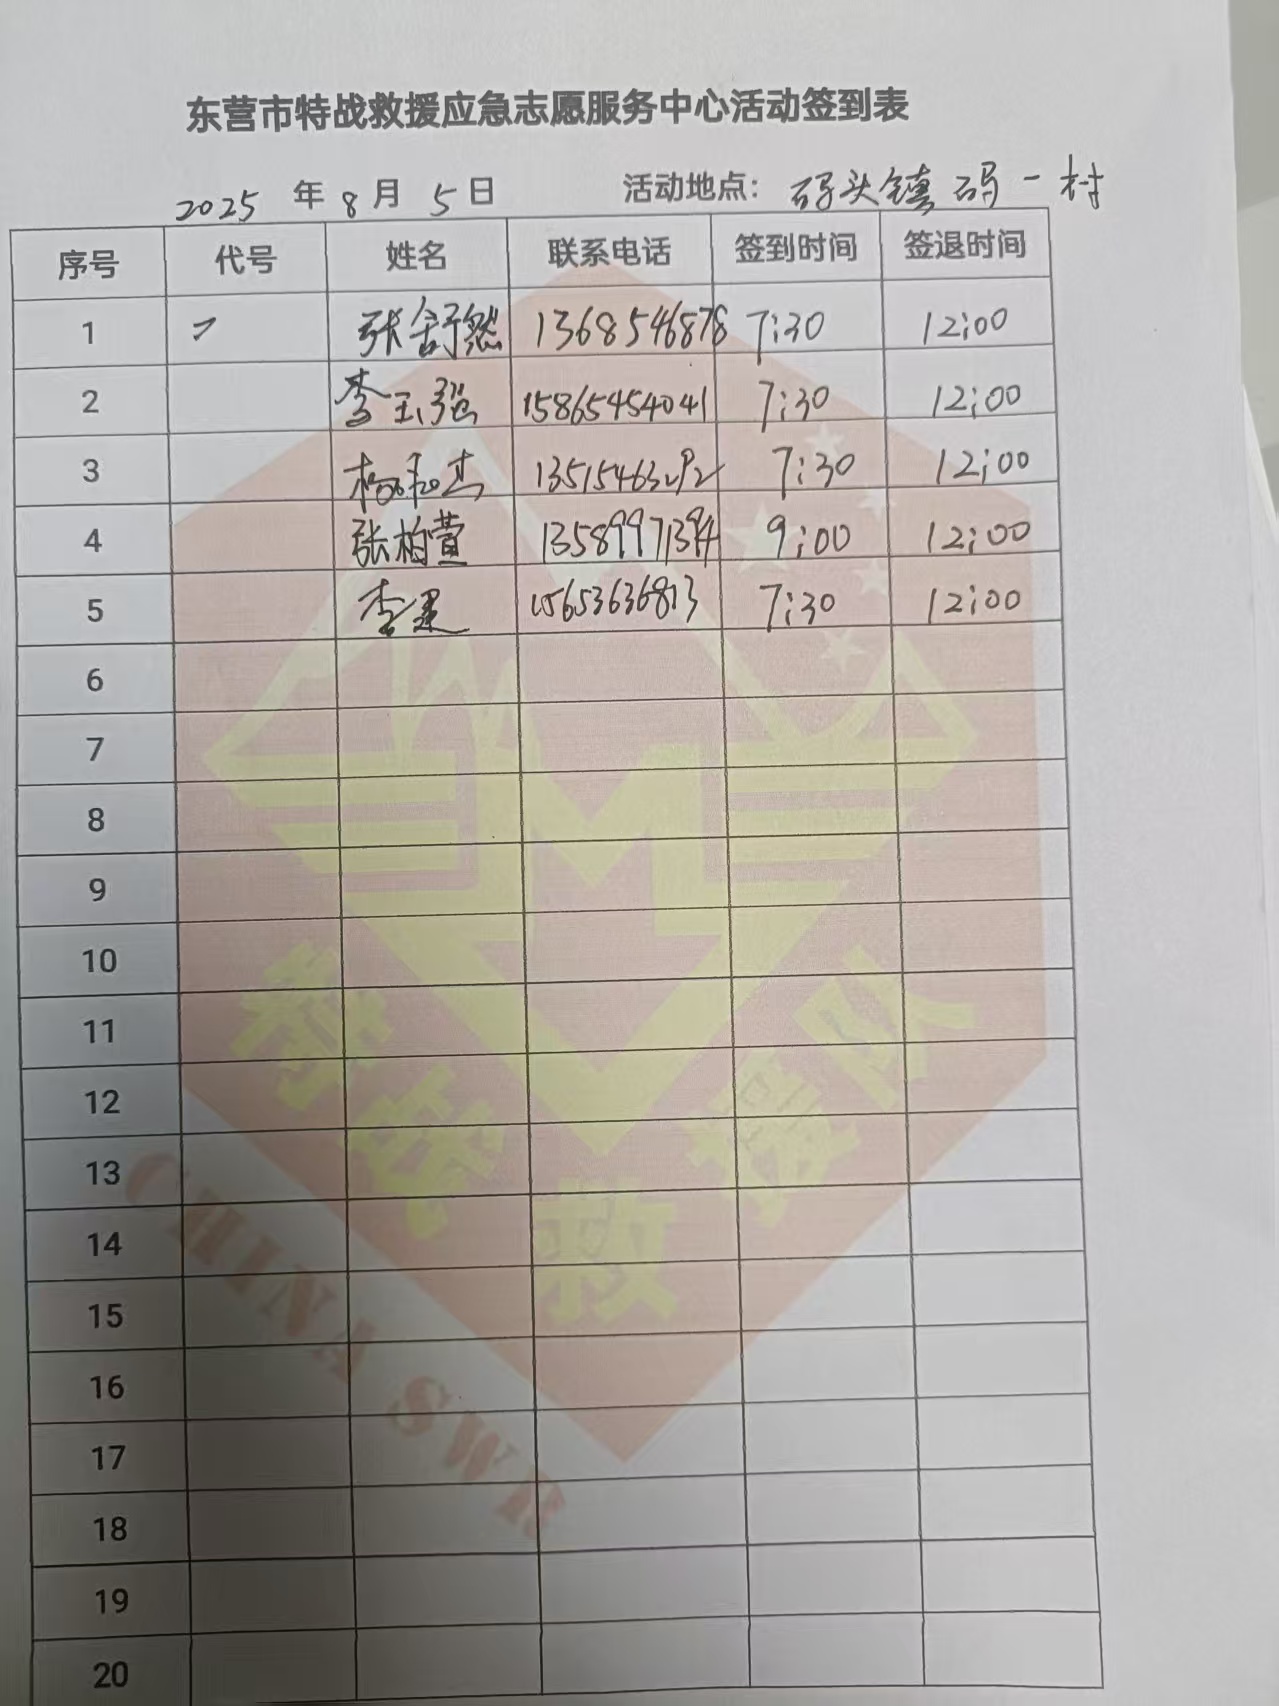 东营市特战救援应急志愿服务中心活动签到表
2025 年 8 月 5 日 活动地点: 码头镇码一村
序号 代号 姓名 联系电话 签到时间 签退时间
1 张舒然 1368546878 7:30 12:00
2 李玉强 15865454041 7:30 12:00
3 杨和杰 7:30 12:00
4 张柏萱 13589971394 9:00 12:00
5 李建 15653636813 7:30 12:00
6
7
8
9
10
11
12
13
14
15
16
17
18
19
20
特战救援队
CHINA SWR